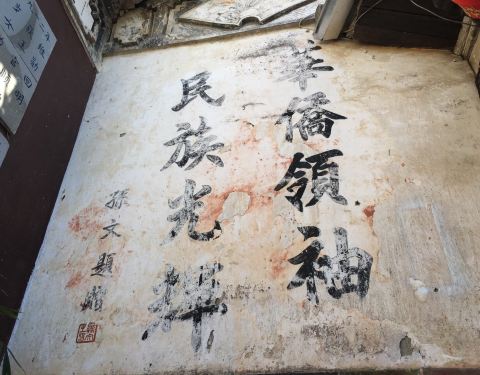 華僑領袖
民族光輝
孫文題贈